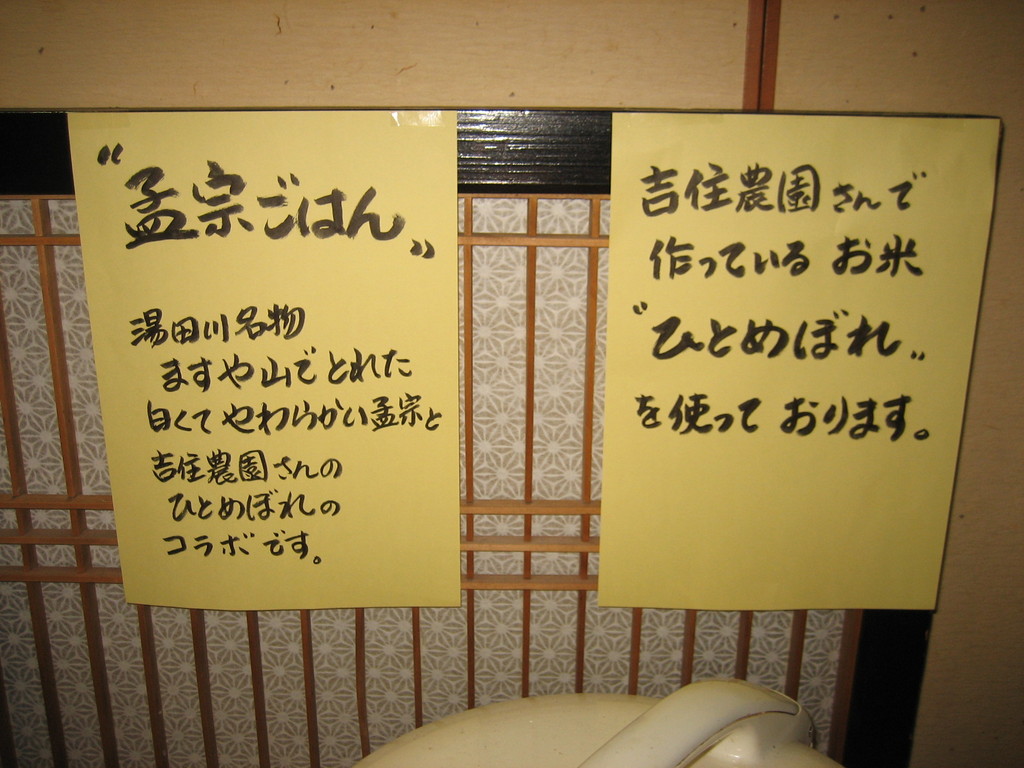 “孟宗ごはん„
湯田川名物
ますや山でとれた
白くてやわらかい孟宗と
吉住農園さんの
ひとめぼれの
コラボです。
吉住農園さんで
作っているお米
“ひとめぼれ„
を使っております。